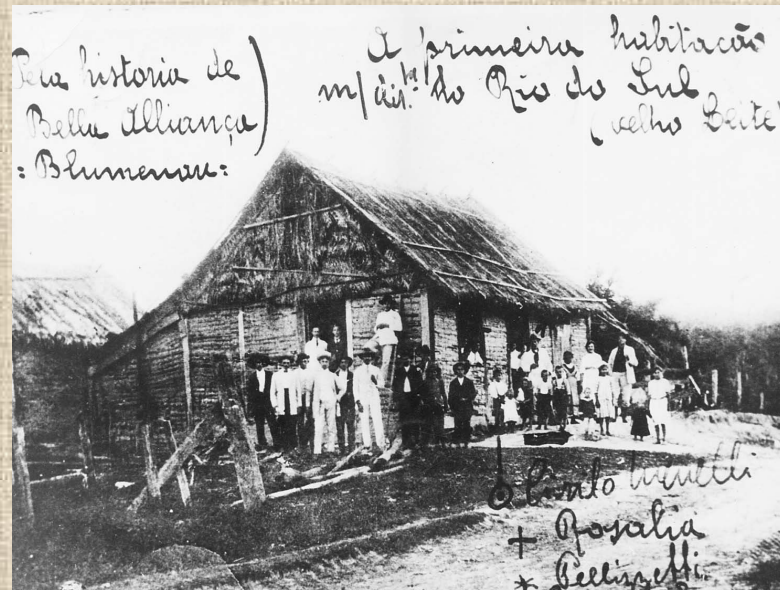 Pela historia de
Bella Alliança)
: Blumenau :
A primeira habitacão
m/ dis.to do Rio do Sul
(velho Leite
+ Rosalia
* Pellizzetti